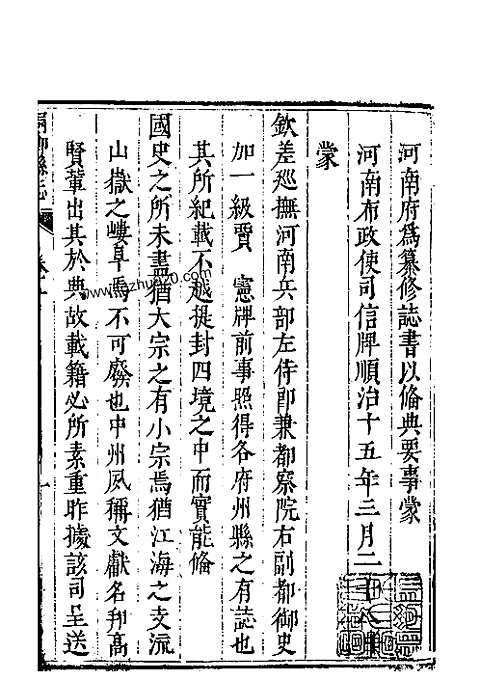 河南府爲纂修誌書以俻典要事蒙
河南布政使司信牌順治十五年三月二
蒙
欽差廵撫河南兵部左侍郎兼都察院右副都御史
加一級賈 憲牌前事照得各府州縣之有誌也
其所紀載不越提封四境之中而實能俻
國史之所未盡猶大宗之有小宗焉猶江海之支流
山嶽之嶁阜焉不可廢也中州夙稱文獻名邦高
賢輩出其於典故載籍必所素重昨據該司呈送
縣志